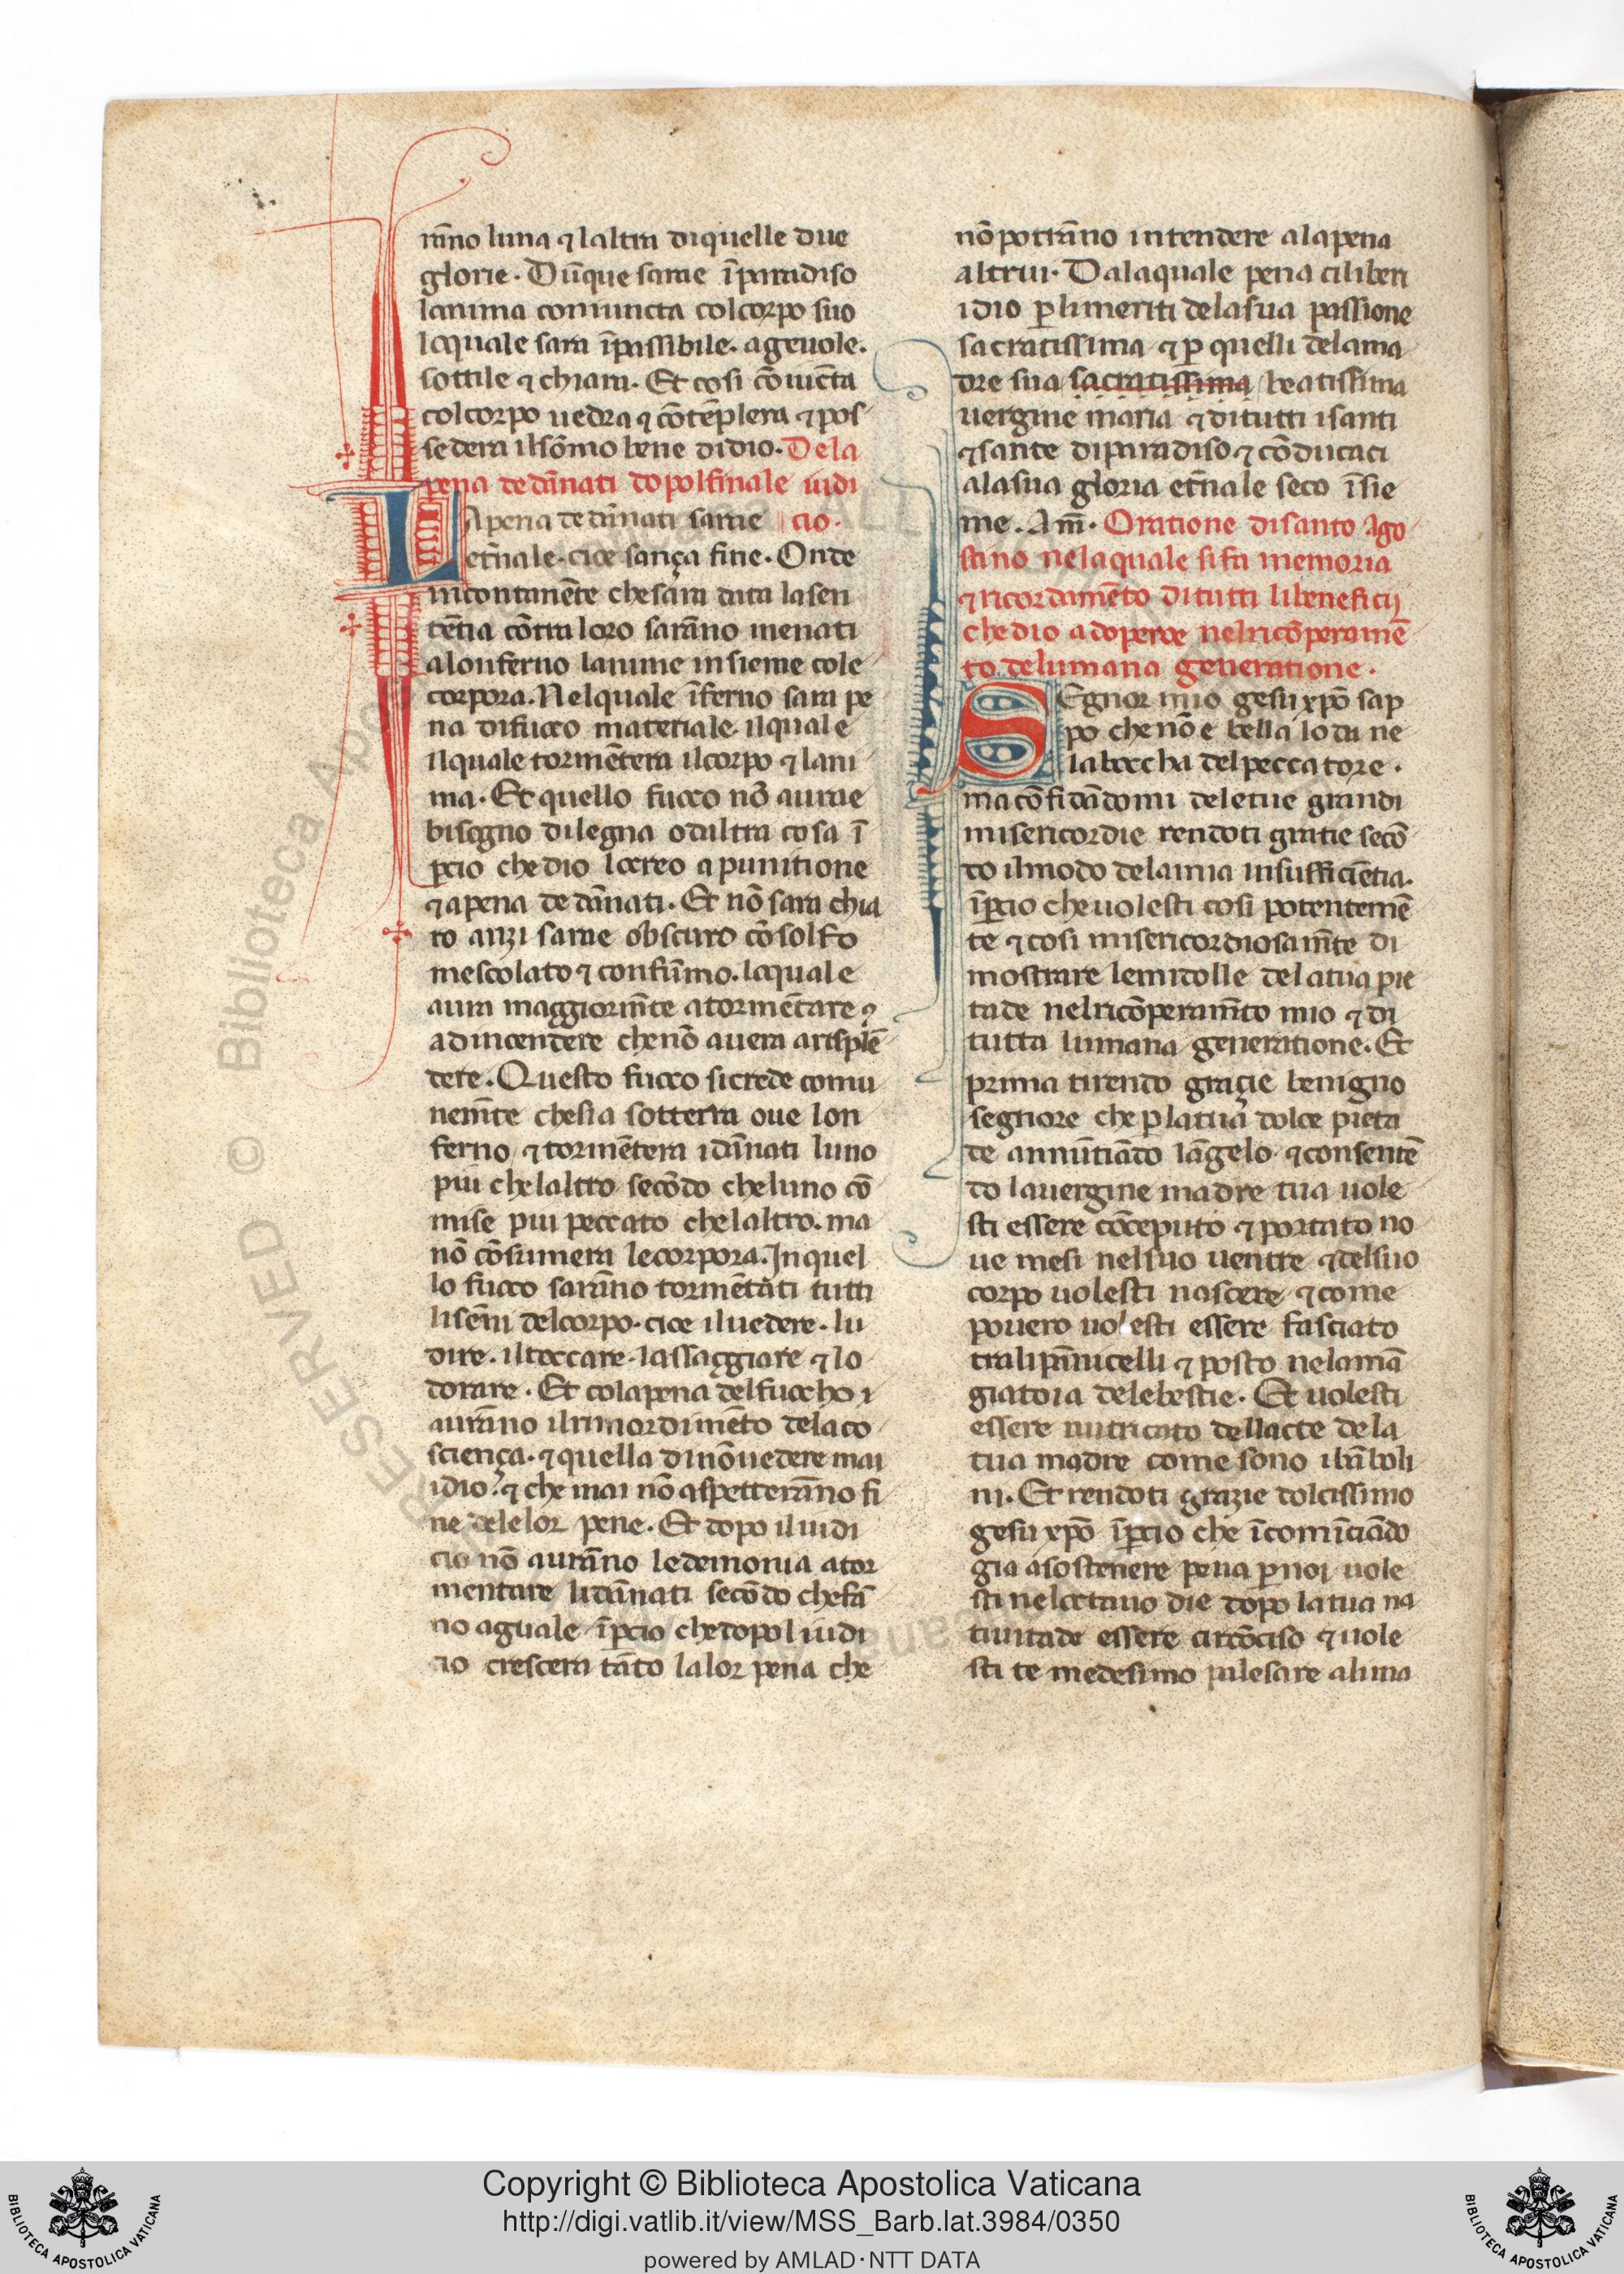 rāno luna ⁊ laltra diquelle due
glorie. Dūque sarae īparadiso
lanima coniuncta colcorpo suo
loquale sara īpassibile. ageuole.
sottile ⁊ chiara. Et cosi cōiucta
colcorpo uedra ⁊ cōtēplera ⁊ pos
sedera ilsōmo bene didio. Dela
pena dedānati dopolfinale iudi
LApena dedānati sarae cio.
et̄nale. cioe sança fine. Onde
incontanēte chesara data lasen
tētia cōtra loro sarāno menati
aloinferno lanime insieme cole
corpora. Nelquale īferno sara pe
na difuoco materiale. ilquale
ilquale tormētera ilcorpo ⁊ lani
ma. Et quello fuoco nō aurae
bisogno dilegna odaltra cosa ī
ꝑcio chedio locreo a punitione
⁊ apena dedānati. Et nō sara chia
ro anzi sarae obscuro cōsolfo
mescolato ⁊ confūmo. loquale
aura maggiorm̄te atormētare ⁊
adincendere chenō auera arisplē
dere. Questo fuoco sicrede comu
nem̄te chesia sotterra oue lon
ferno ⁊ tormētera idānati luno
piu chelaltro secōdo cheluno cō
mise piu peccato chelaltro. ma
nō cōsumera lecorpora. Inquel
lo fuoco sarāno tormētati tutti
lisēni delcorpo. cioe iluedere. lu
dire. iltoccare. lassaggiare ⁊ lo
dorare. Et colapena delfuocho i
aurāno ilrimordimēto delaco
sciença. ⁊ quella dinōuedere mai
idio. ⁊ che mai nō aspetterāno fi
ne delelor pene. Et dopo iliudi
cio nō aurāno ledemonia ator
mentare lidānati secōdo chefā
no aguale īꝑcio chedopol iudi
cio crescera tāto lalor pena che
nō potrāno intendere alapena
altrui. Dalaquale pena ciliberi
idio ꝑ limeriti delasua passione
sacratissima ⁊ ꝑ quelli delama
dre sua sacratissima beatissima
uergine maria ⁊ ditutti isanti
⁊ sante diparadiso. ⁊ cōducaci
alasua gloria et̄nale seco īsie
me. Am̄. Oratione disanto Ago
stino nelaquale sifa memoria
⁊ ricordamēto ditutti libeneficij
chedio adoperoe nelricōperamē
to delumana generatione.
SEgnor mio gesu xp̄o sap
po chenō e bella loda ne
labocca delpeccatore.
ma cōfidādomi deletue grandi
misericordie rendoti gratie secō
do ilmodo delamia insufficiētia.
īꝑcio cheuolesti cosi potentemē
te ⁊ cosi misericordiosam̄te di
mostrare lemidolle delatua pie
tade nelricōperam̄to mio ⁊ di
tutta lumana generatione. Et
prima tirendo graçie benigno
segnore che ꝑ latua dolce pieta
de annūtiādo lāgelo ⁊ consentē
do lauergine madre tua uole
sti essere cōceputo ⁊ portato no
ue mesi nelsuo uentre ⁊ delsuo
corpo uolesti nascere ⁊ come
pouero uolesti essere fasciato
tralipānicelli ⁊ posto nelamā
giatoia delebestie. Et uolesti
essere nutricato dellacte dela
tua madre come sono ibāboli
ni. Et rendoti grazie dolcissimo
gesu xp̄o īꝑcio che īcomīciādo
gia asostenere pena ꝑ noi uole
sti neloctauo die dopo latua na
tiuitade essere circōciso ⁊ uole
sti te medesimo palesare aluma
Copyright © Biblioteca Apostolica Vaticana
http://digi.vatlib.it/view/MSS_Barb.lat.3984/0350
powered by AMLAD·NTT DATA
BIBLIOTECA APOSTOLICA VATICANA
BIBLIOTECA APOSTOLICA VATICANA